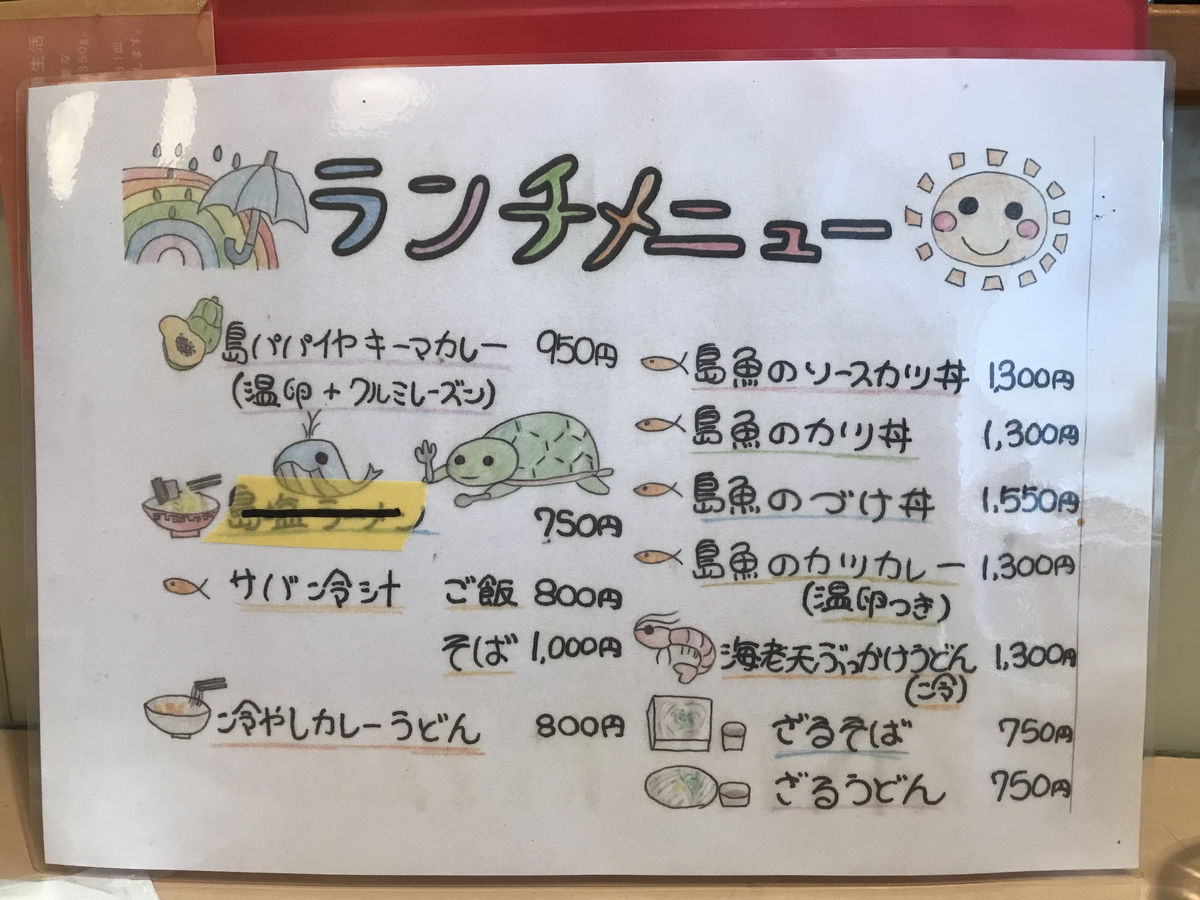 ランチメニュー
島パパイヤキーマカレー 950円
(温卵+クルミレーズン)
島塩ラーメン 750円
サバ冷汁 ご飯 800円
そば 1,000円
冷やしカレーうどん 800円
島魚のソースカツ丼 1,300円
島魚のカツ丼 1,300円
島魚のづけ丼 1,550円
島魚のカツカレー 1,300円
(温卵つき)
海老天ぶっかけうどん 1,300円
(冷)
ざるそば 750円
ざるうどん 750円